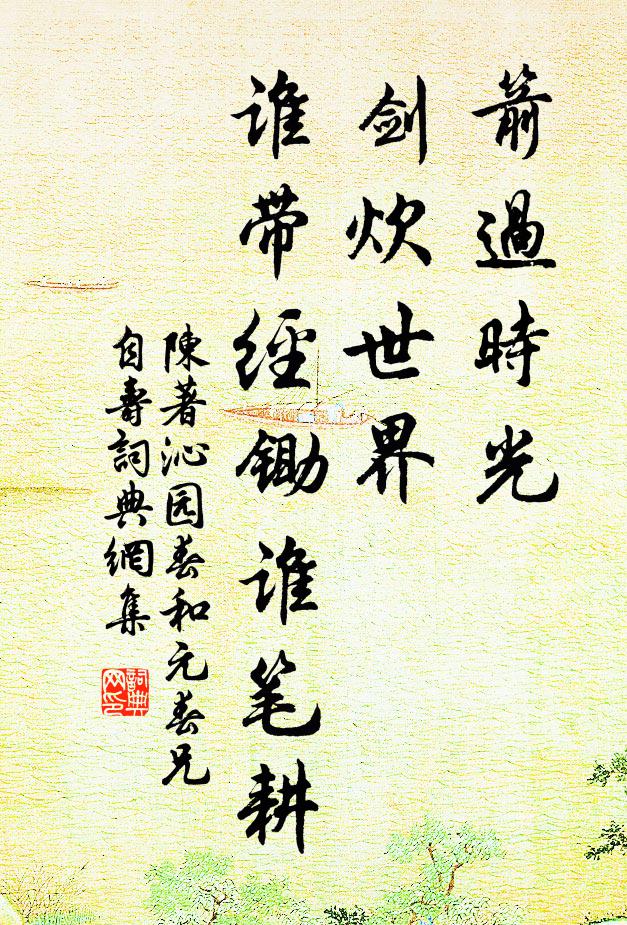 箭過時光
劍炊世界
谁带經锄谁笔耕
陳著沁园春和元春兄
自壽詞典網集
詞典
网印